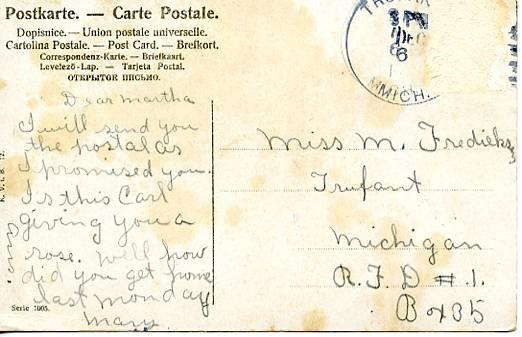 Postkarte. — Carte Postale.
Dopisnice. — Union postale universelle.
Cartolina Postale. — Post Card. — Brefkort.
Correspondenz-Karte. — Briefkaart.
Levelező-Lap. — Tarjeta Postal.
ОТКРЫТОЕ ПИСЬМО.
Dear Martha
I will send you
the postal as
I promised you.
Is this Carl
giving you a
rose. Well how
did you get home
last monday
Mary.
Ans.
Serie 1005.
MICH.
Miss M. Fredicks
Trufant
Michigan
R.F.D #1.
Box35